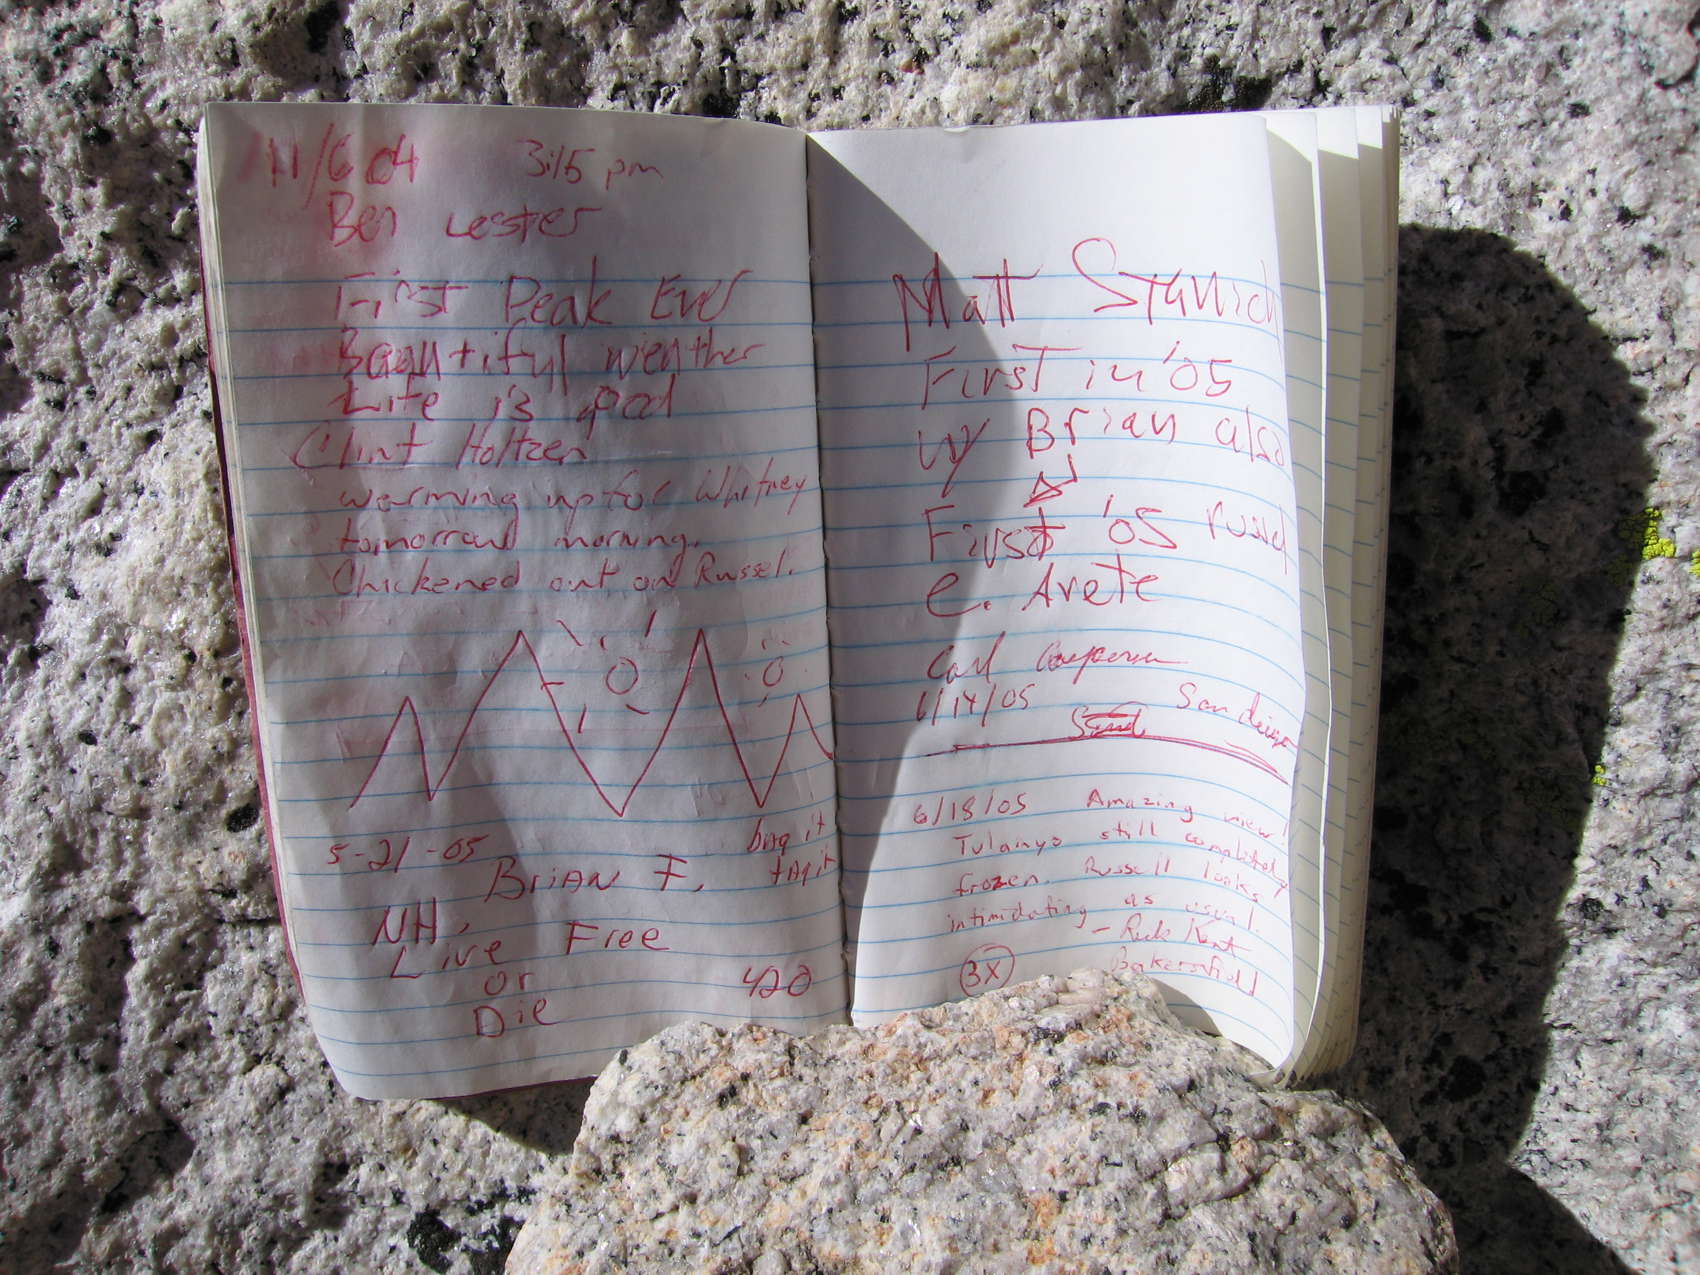 11/6 04 3:15 pm
Ben Lester
First Peak Ever
Beautiful weather
Life is good
Clint Holtzen
warming up for Whitney
tomorrow morning.
Chickened out on Russel.
5-21-05
bag it
tag it
BRIAN F.
NH,
Live Free
or
Die
420
Matt Stanich
First in '05
w/ Brian also
First '05 russel
e. Arete
Carl
6/14/05 San diego
6/18/05 Amazing view!
Tulanyo still completely
frozen. Russell looks
intimidating as usual.
- Rick Kent
3X Bakersfield